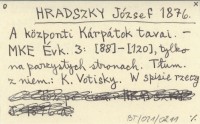 HRADSZKY József 1876.
A központi Kárpátok tavai. –
MKE Évk. 3: [88]–[120], tylko
na parzystych stronach. Tłum.
z niem.: K. Votisky. W spisie rzeczy
BT/021/0211